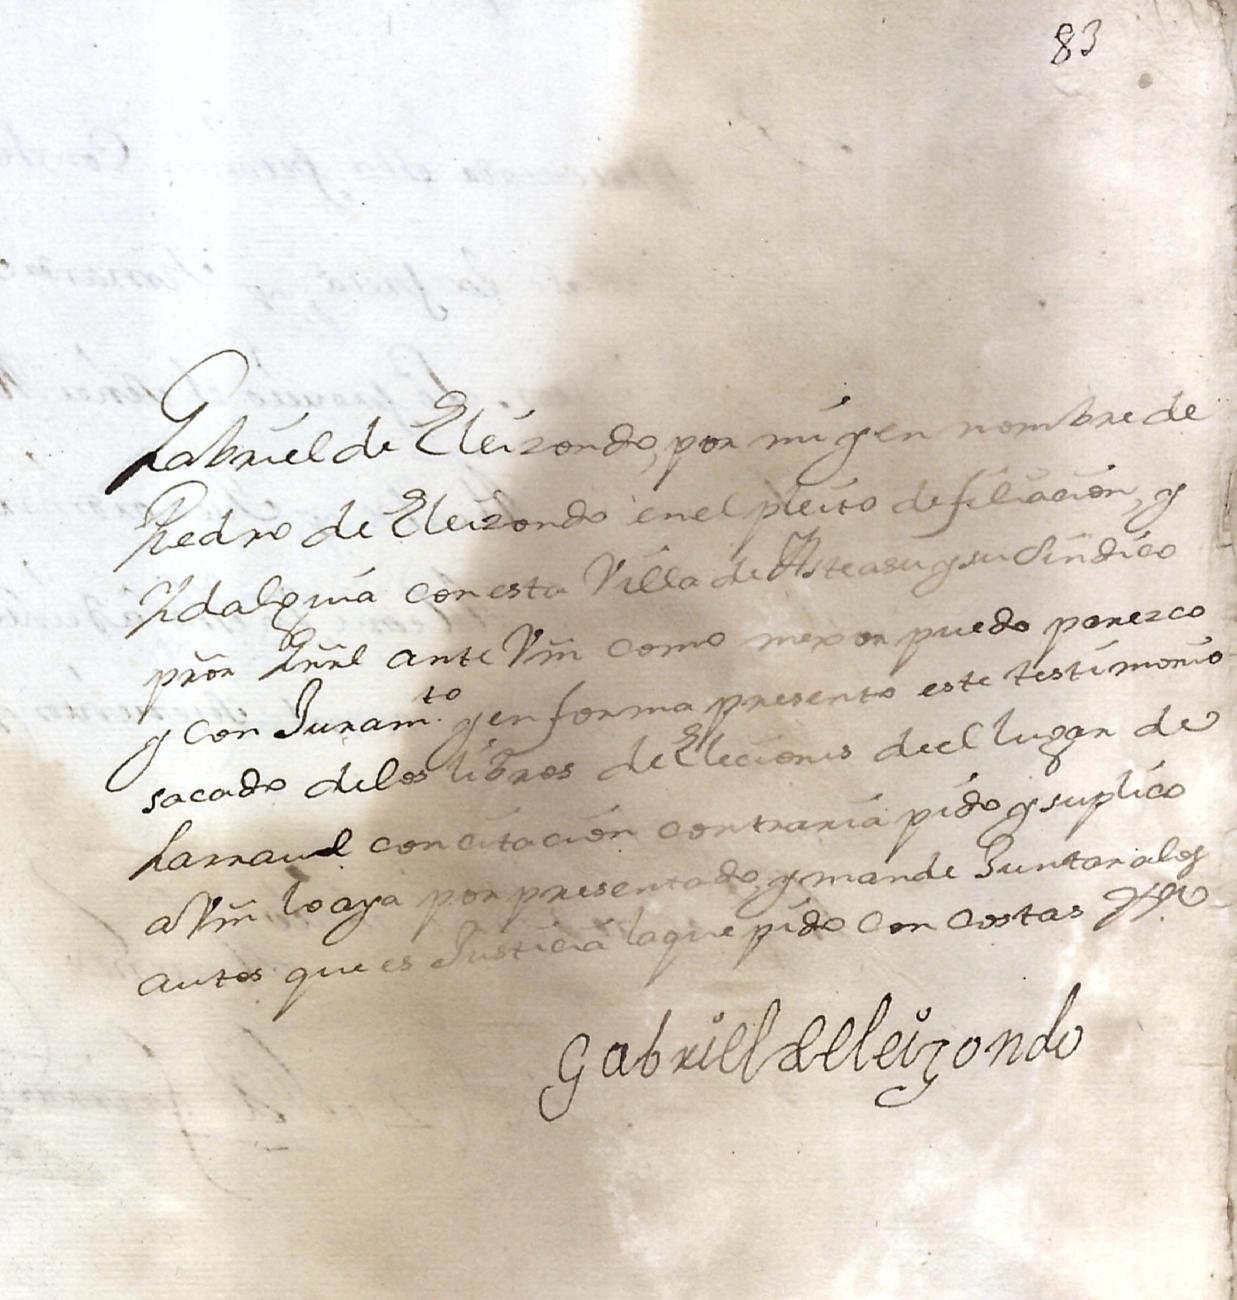 83
Gabriel de Eleizondo, por mi y en nombre de
Pedro de Eleizondo en el pleito de filiacion, y
Ydalguia con esta Villa de Asteasu y su Sindico
pror Gñrl ante Vm como mexor puedo parezco
y con Juramto. y en forma presento este testimonio
sacado de los libros de Eleciones de el lugar de
Larraul con citacion contraria pido y suplico
a Vm lo aya por presentado, y mande Juntar a los
autos que es Justicia la que pido con costas
Gabriell de Eleizondo